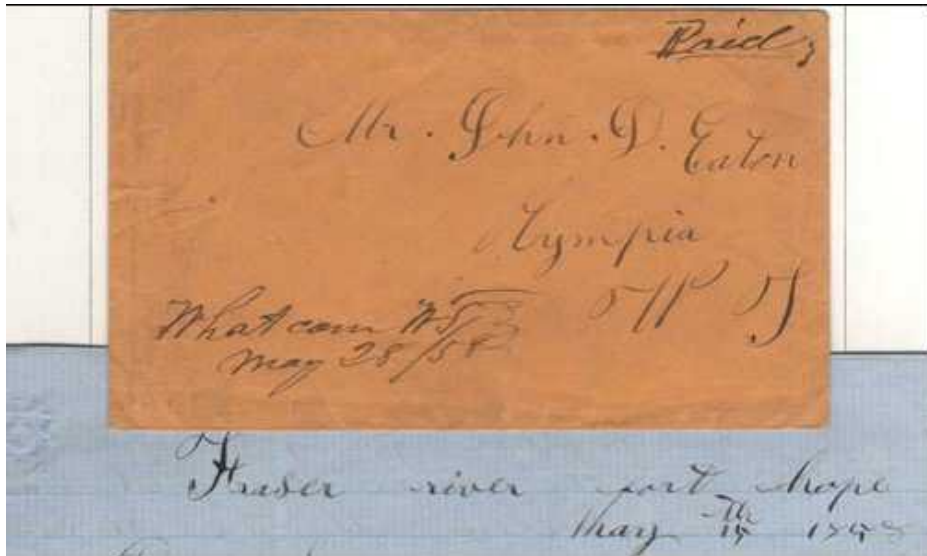 Paid 3
Mr. John D. Eaton
Olympia
W T
Whatcom W T
May 28/58
Fraser river fort hope
May